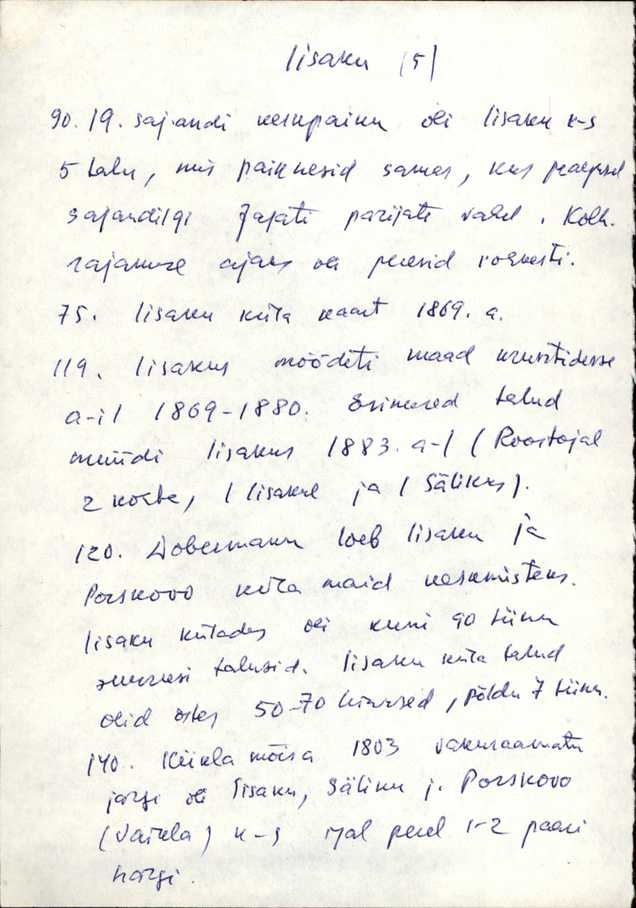 Iisaku (5)
90. 19. sajandi keskpaiku oli Iisaku k-s
5 talu, mis paiknesid samas, kus praegusel
sajandilgi Jajati parijate valed. Kolh.
rajamise ajaks oli peresid rohkesti.
75. Iisaku küla kaart 1869. a.
119. Iisakus mõõdeti maad kruntidesse
a-il 1869-1880. Esimesed talud
müüdi Iisakus 1883. a-l (Roostojal
2 kohta, 1 Iisakul ja 1 Sälikus).
120. Dobermann loeb Iisaku ja
Porskovo küla maid keskmisteks.
Iisaku külades oli kuni 90 tiinu
suurusi talusid. Iisaku küla talud
olid 50-70 tiinused, põldu 7 tiinu.
140. Kiikla mõisa 1803 vakuraamatu
järgi oli Iisaku, Säliku j. Porskovo
(Vaikla) k-s igal perel 1-2 paari
härgi.